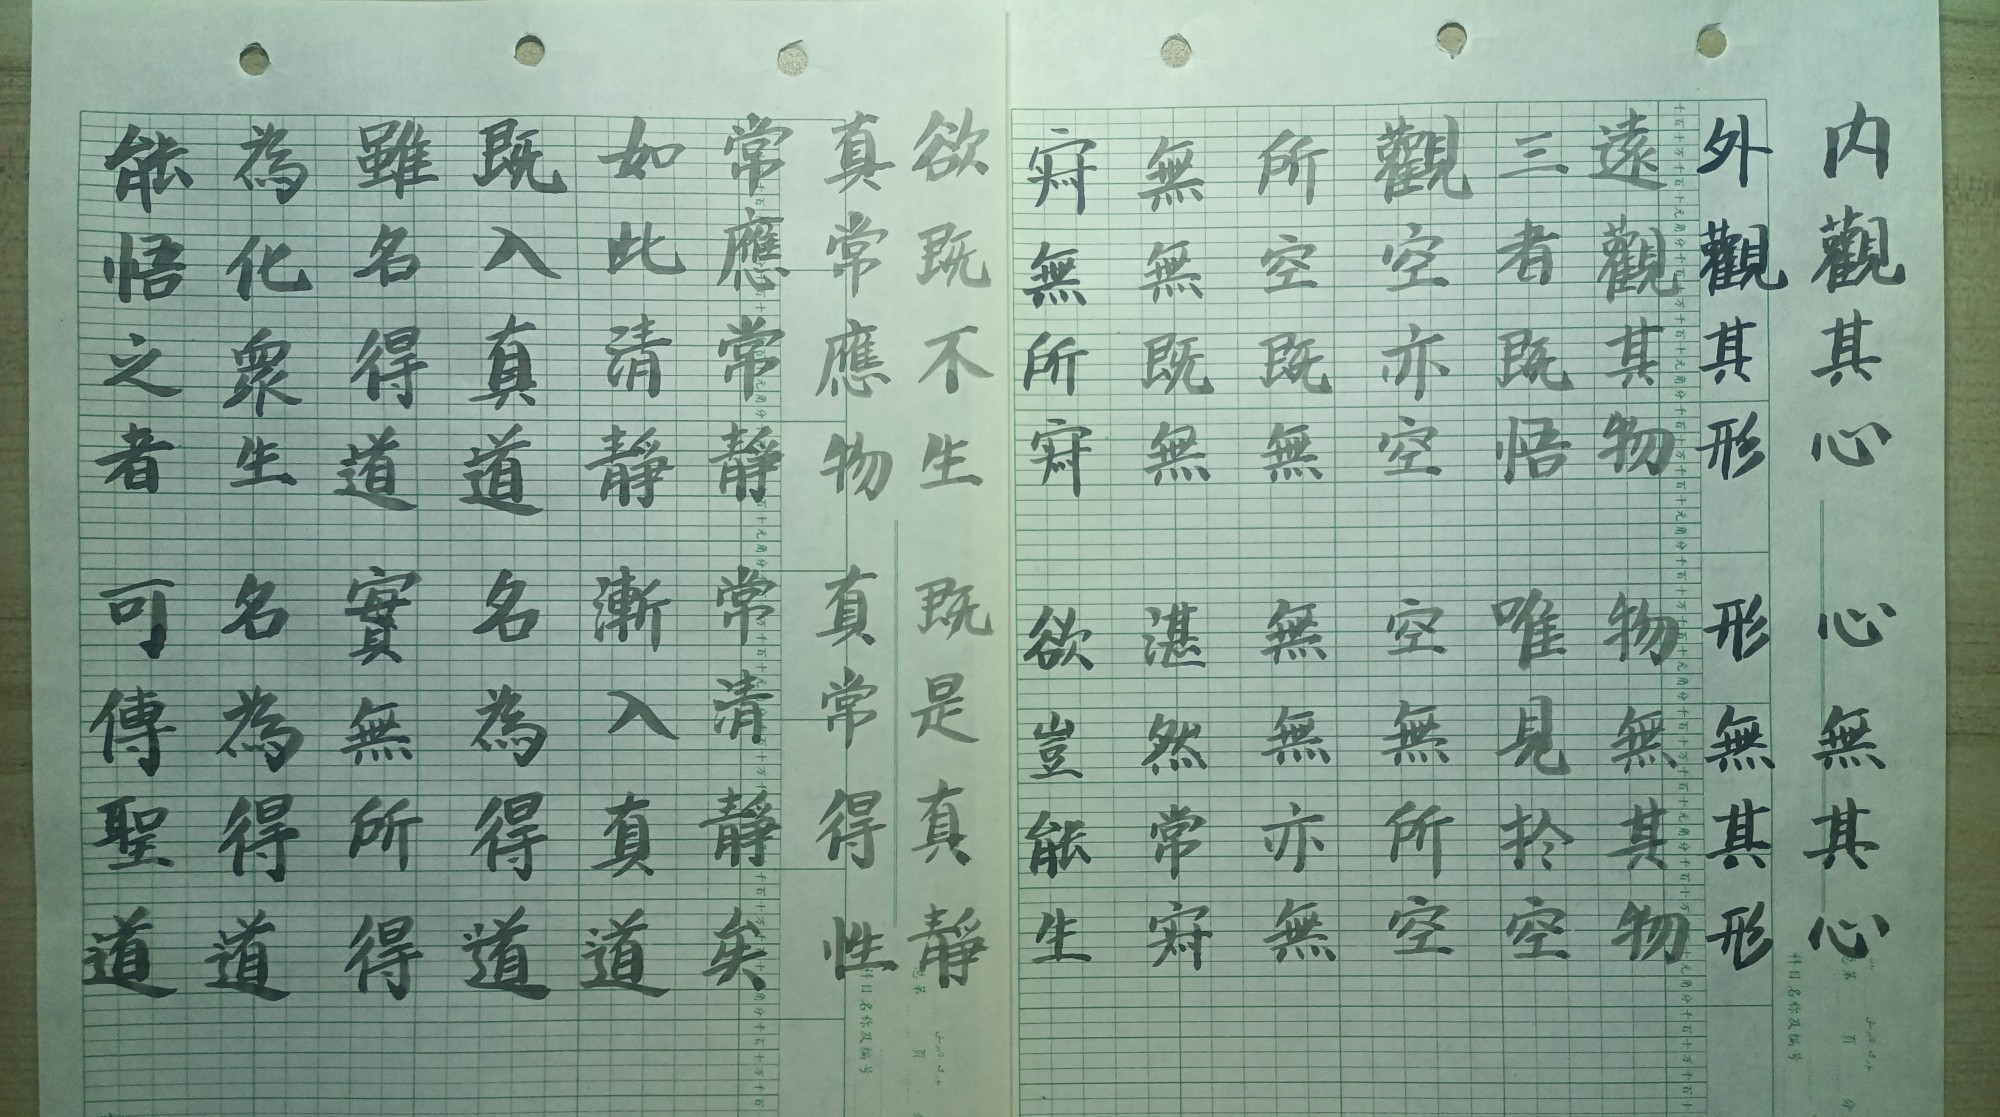 内觀其心 心無其心
外觀其形 形無其形
遠觀其物 物無其物
三者既悟 唯見扵空
觀空亦空 空無所空
所空既無 無無亦無
無無既無 湛然常寂
寂無所寂 欲豈能生
欲既不生 既是真靜
真常應物 真常得性
常應常靜 常清靜矣
如此清靜 漸入真道
既入真道 名為得道
雖名得道 實無所得
為化眾生 名為得道
能悟之者 可傳聖道
科目名称及编号
科目名称及编号